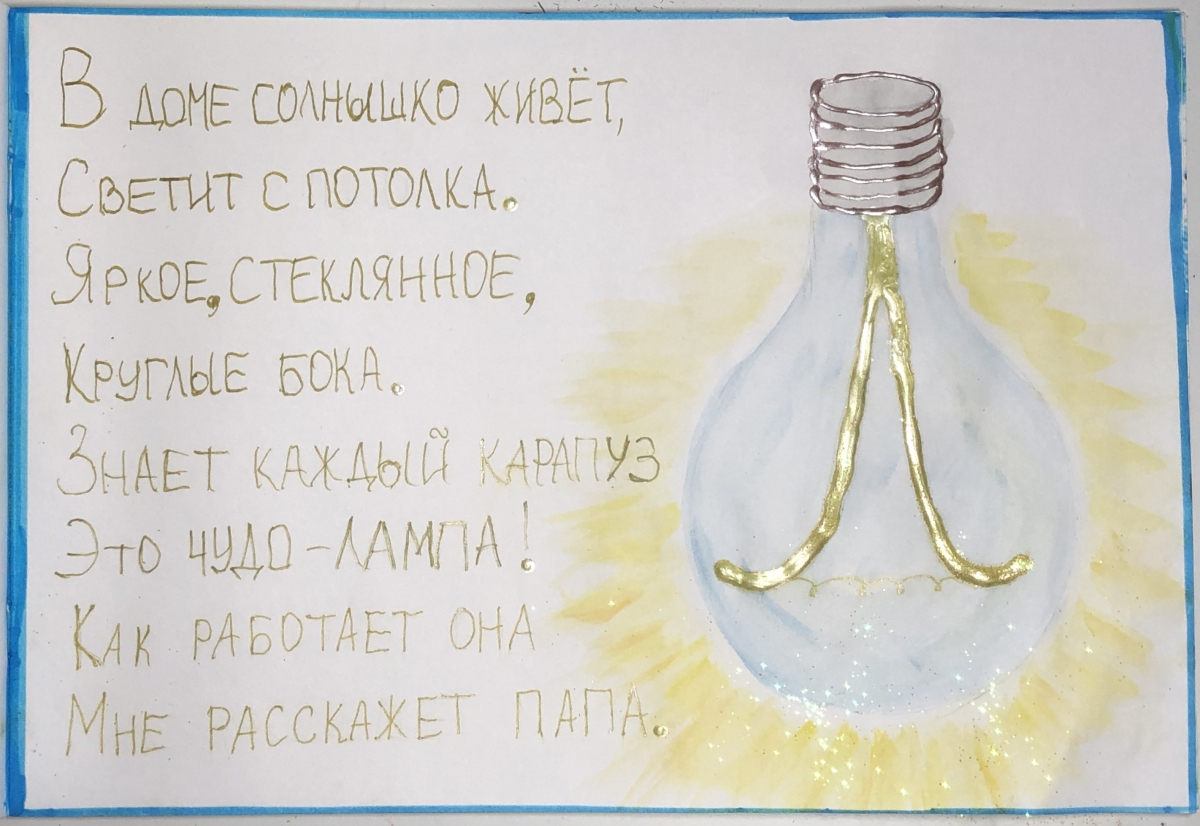 В ДОМЕ СОЛНЫШКО ЖИВЁТ,
СВЕТИТ С ПОТОЛКА.
ЯРКОЕ, СТЕКЛЯННОЕ,
КРУГЛЫЕ БОКА.
ЗНАЕТ КАЖДЫЙ КАРАПУЗ
ЭТО ЧУДО - ЛАМПА!
КАК РАБОТАЕТ ОНА
МНЕ РАССКАЖЕТ ПАПА.